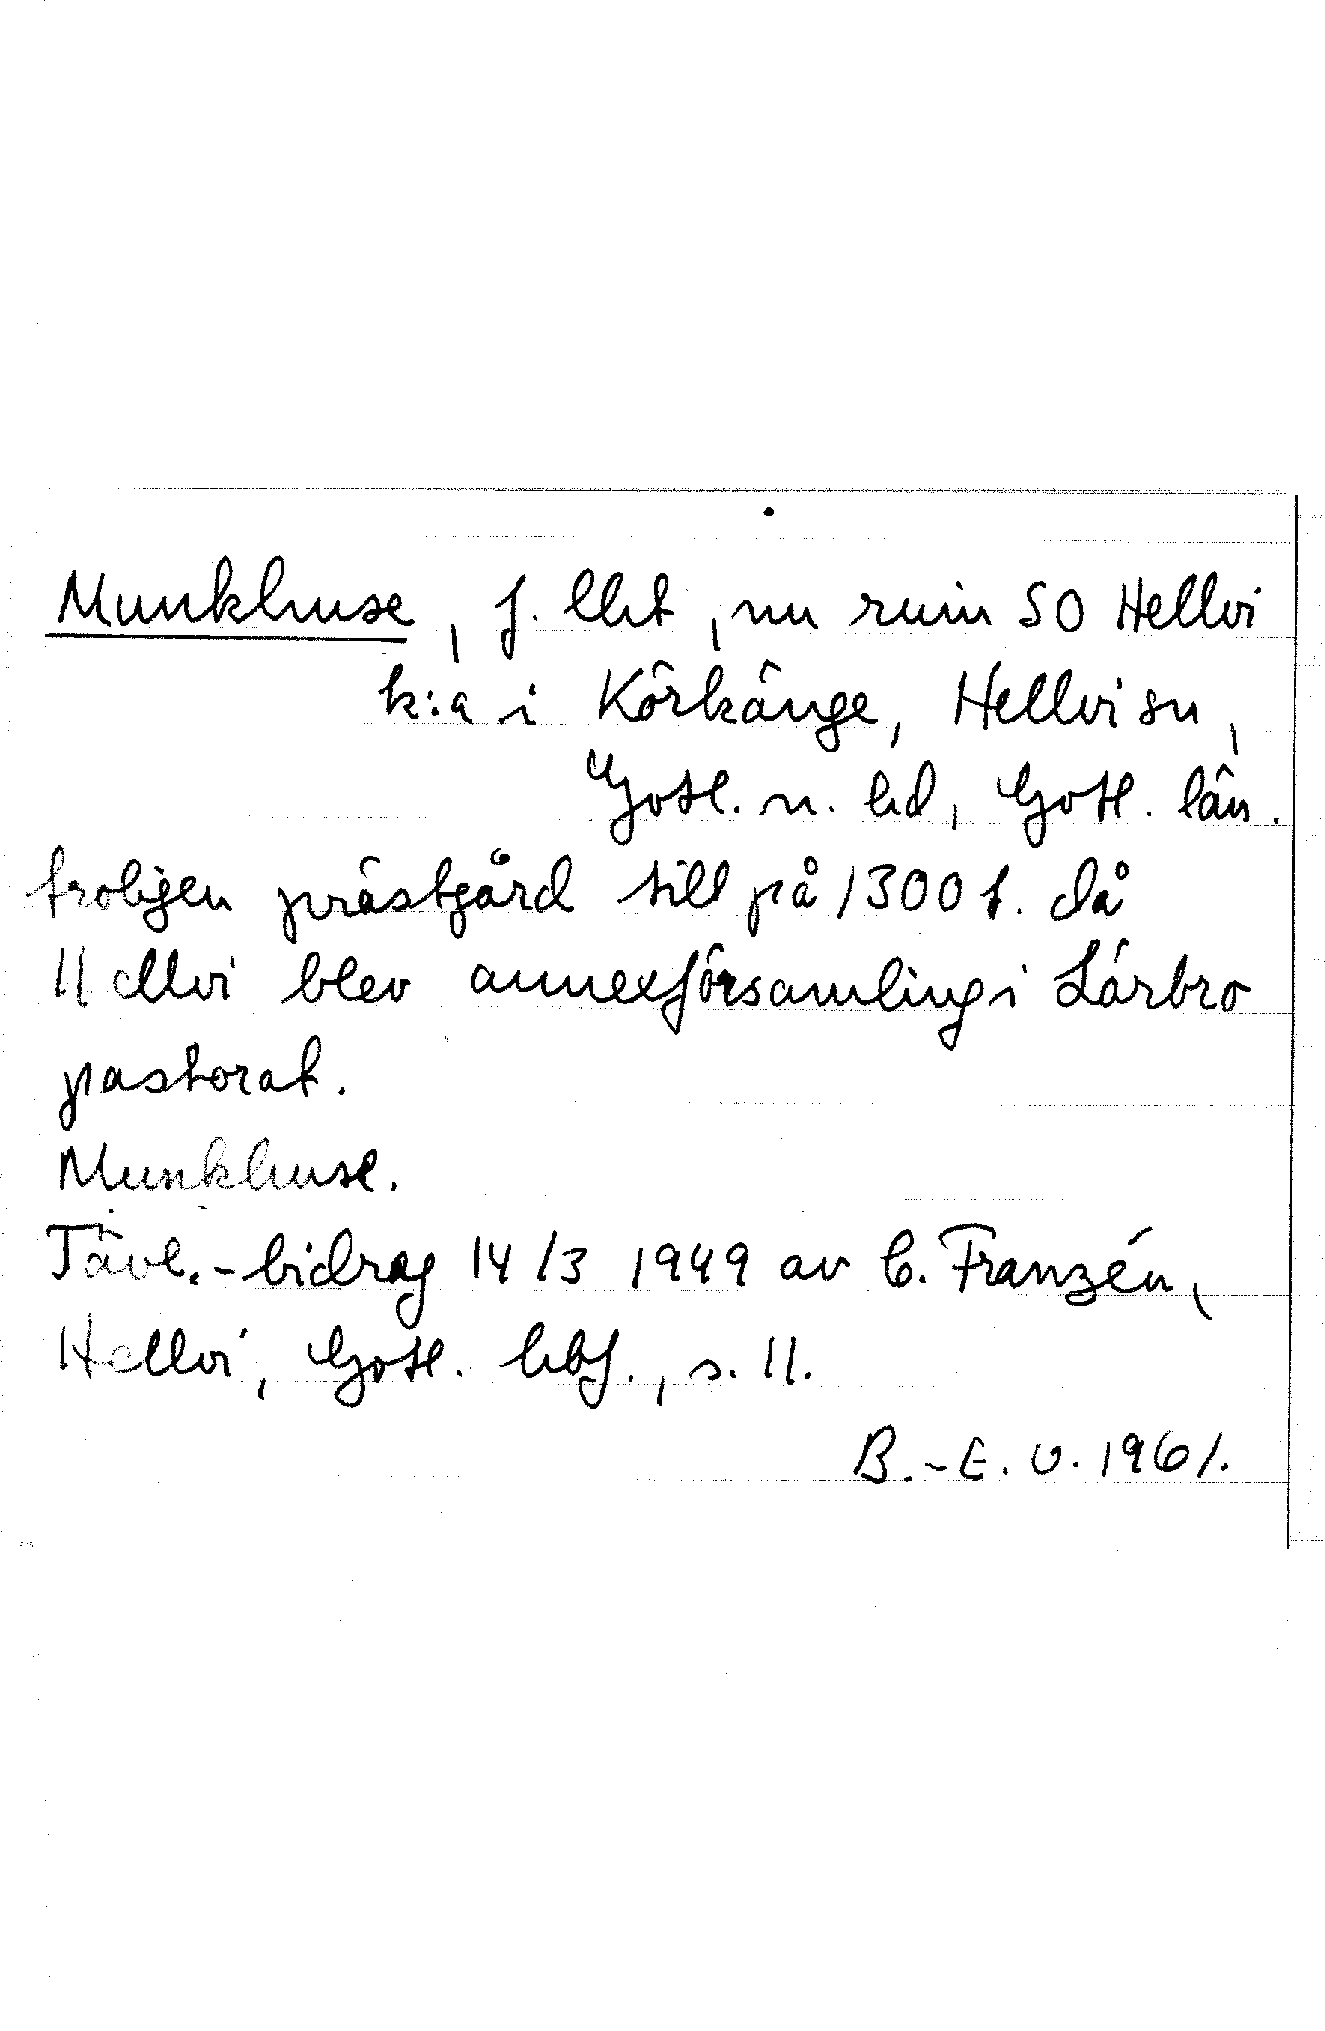 Munkhuse, f. lht, nu ruin SO Hellvi
k:a i Körkänge, Hellvi sn,
Gotl. n. hd, Gotl. län.
troligen prästgård till på 1300 t. då
Hellvi blev annexförsamling i Lärbro
pastorat.
Munkhuse.
Tävl.-bidrag 14/3 1949 av C. Franzén,
Hellvi, Gotl. hbf., s. 11.
B.-E. U. 1961.